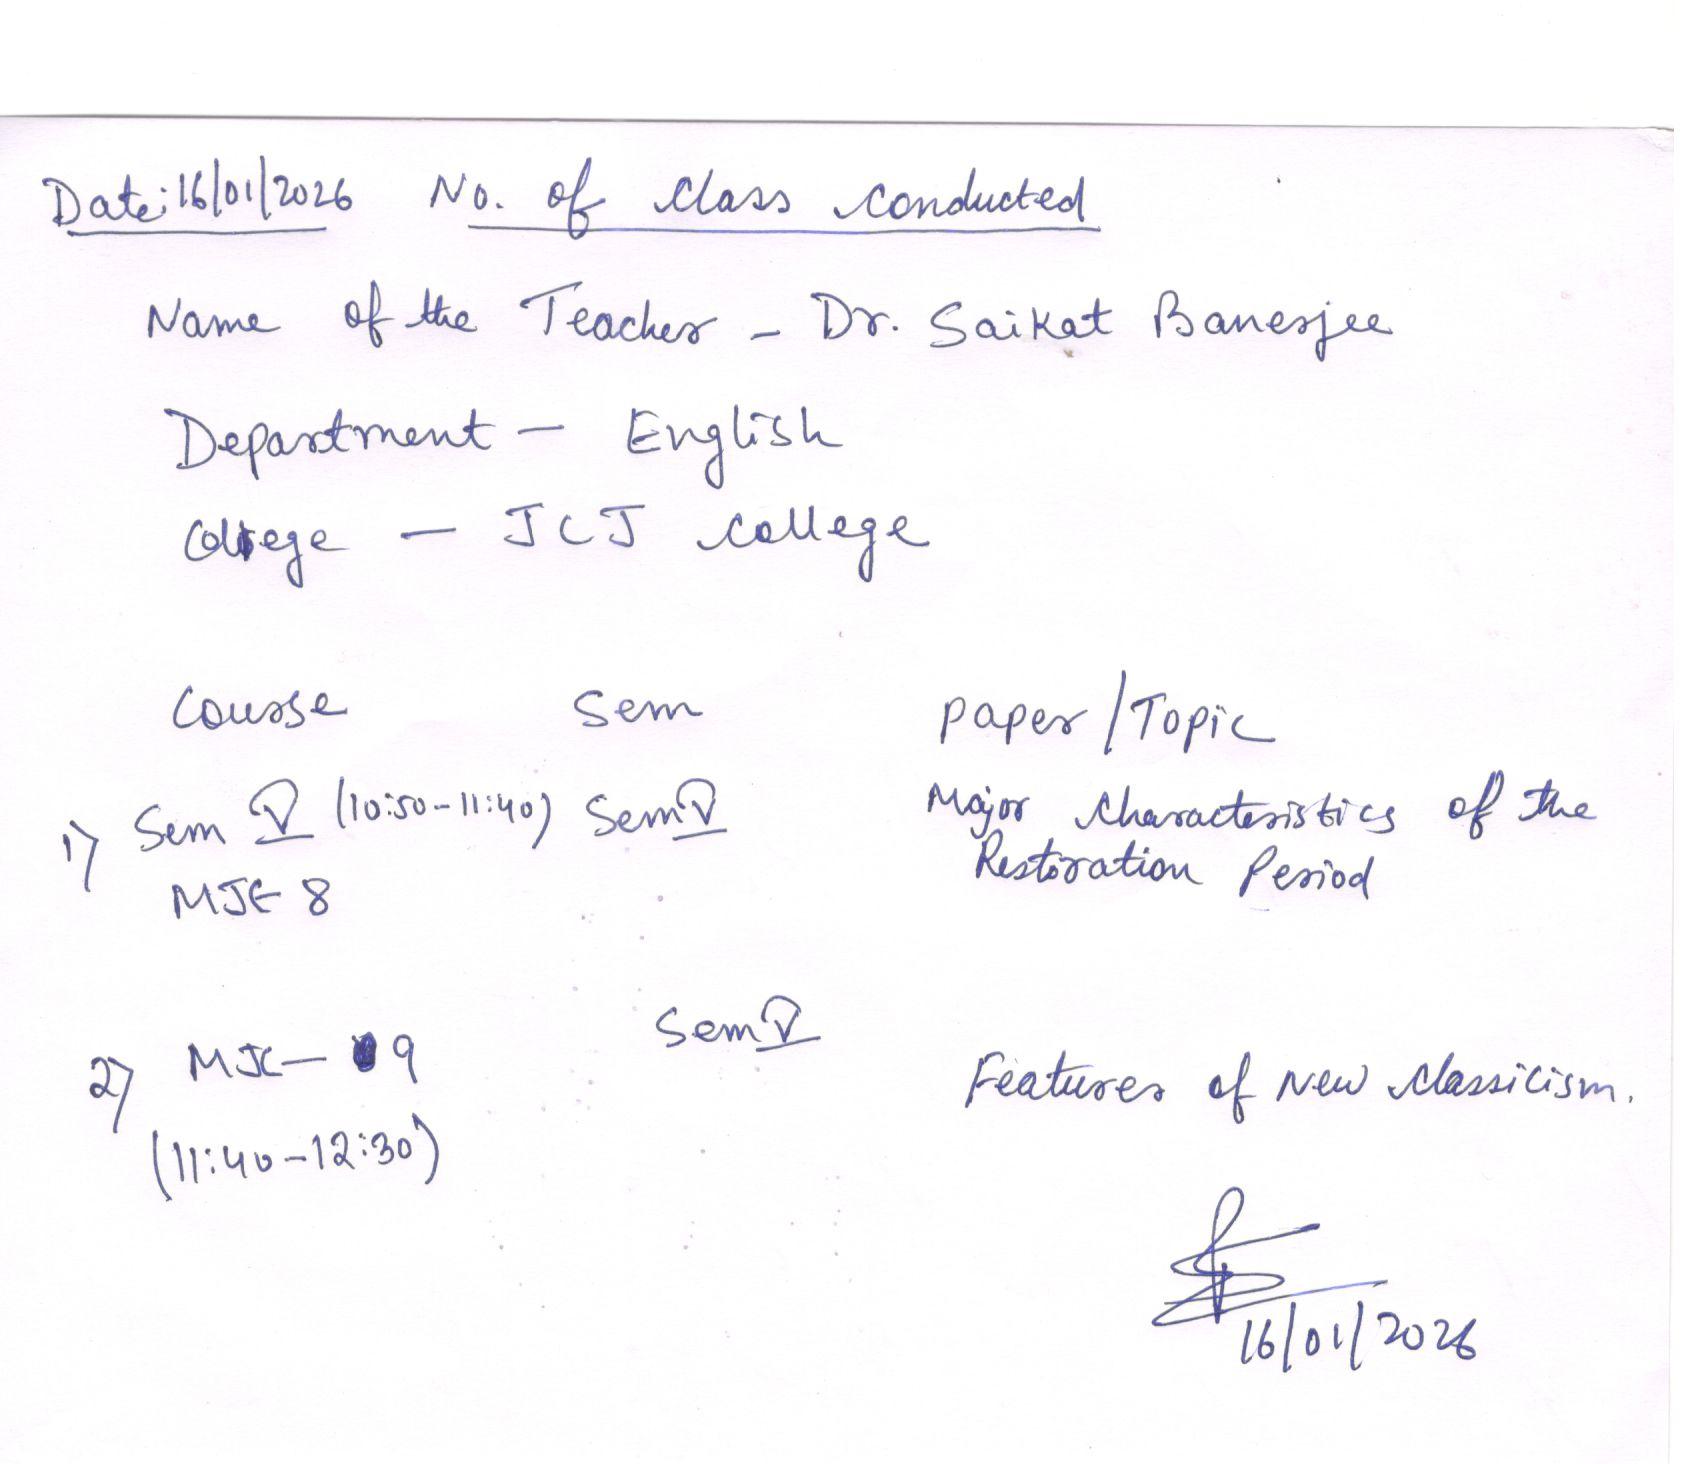 Date: 16/01/2026 No. of class conducted
Name of the Teacher - Dr. Saikat Banerjee
Department - English
College - JCJ college
Course Sem Paper / Topic
1) Sem V (10:50-11:40) Sem V Major characteristics of the
MJC 8 Restoration Period
2) MJC- 9 Sem V Features of New classicism.
(11:40-12:30)
16/01/2026